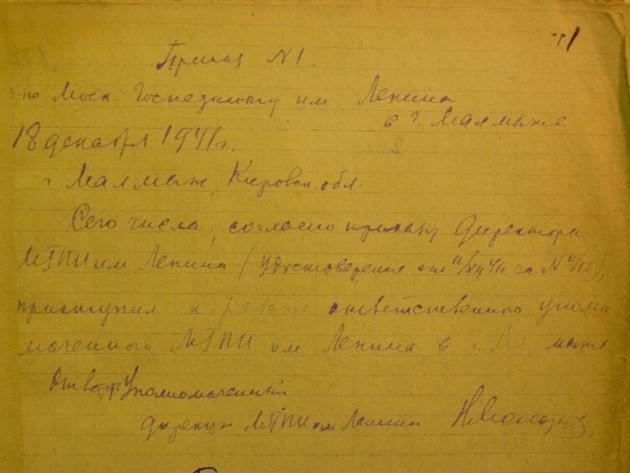 1
Приказ № 1.
по Моск. Госпединституту им Ленина
в г. Малмыже
18 декабря 1941 г.
г Малмыж, Кировск. обл.
Сего числа, согласно приказу директора
МГПИ им Ленина (удостоверение от за №
приступил к работе ответственного уполно
моченного МГПИ им Ленина в г. Малмыже
Ответ. Уполномоченный
дирекции МГПИ им Ленина